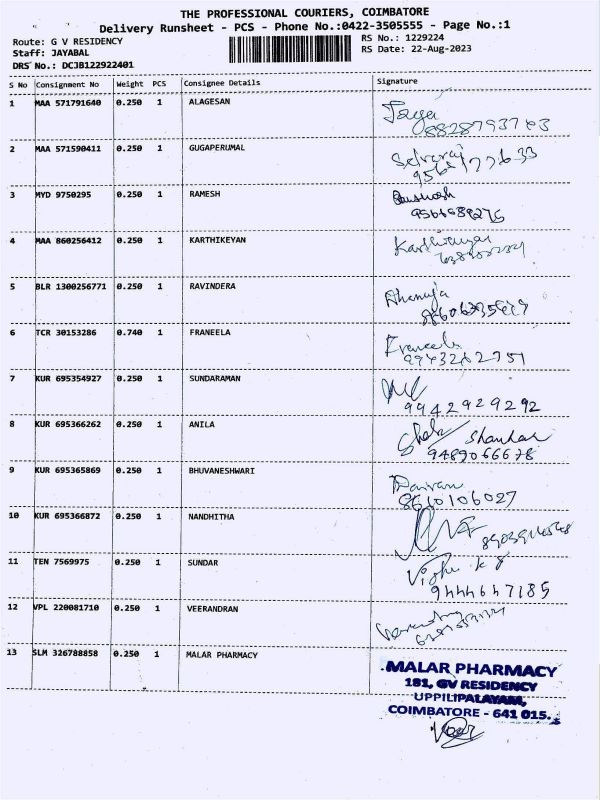 THE PROFESSIONAL COURIERS, COIMBATORE
Delivery Runsheet - PCS - Phone No.:0422-3505555 - Page No.:1
Route: G V RESIDENCY RS No.: 1229224
Staff: JAYABAL RS Date: 22-Aug-2023
DRS No.: DCJB122922401
S No Consignment No Weight PCS Consignee Details Signature
1 MAA 571791640 0.250 1 ALAGESAN Jaya
2 MAA 571590411 0.250 1 GUGAPERUMAL Selvaraj
3 MYD 9750295 0.250 1 RAMESH
4 MAA 860256412 0.250 1 KARTHIKEYAN Karthikeyan
5 BLR 1300256771 0.250 1 RAVINDERA Dhanuja
6 TCR 30153286 0.740 1 FRANEELA Franeela
9943262751
7 KUR 695354927 0.250 1 SUNDARAMAN
9942929292
8 KUR 695366262 0.250 1 ANILA Shankar
9489066678
9 KUR 695365869 0.250 1 BHUVANESHWARI
8610106027
10 KUR 695366872 0.250 1 NANDHITHA
11 TEN 7569975 0.250 1 SUNDAR
9444647185
12 VPL 220081710 0.250 1 VEERANDRAN
13 SLM 326788858 0.250 1 MALAR PHARMACY
MALAR PHARMACY
181, GV RESIDENCY
UPPILIPALAYAM,
COIMBATORE - 641 015.